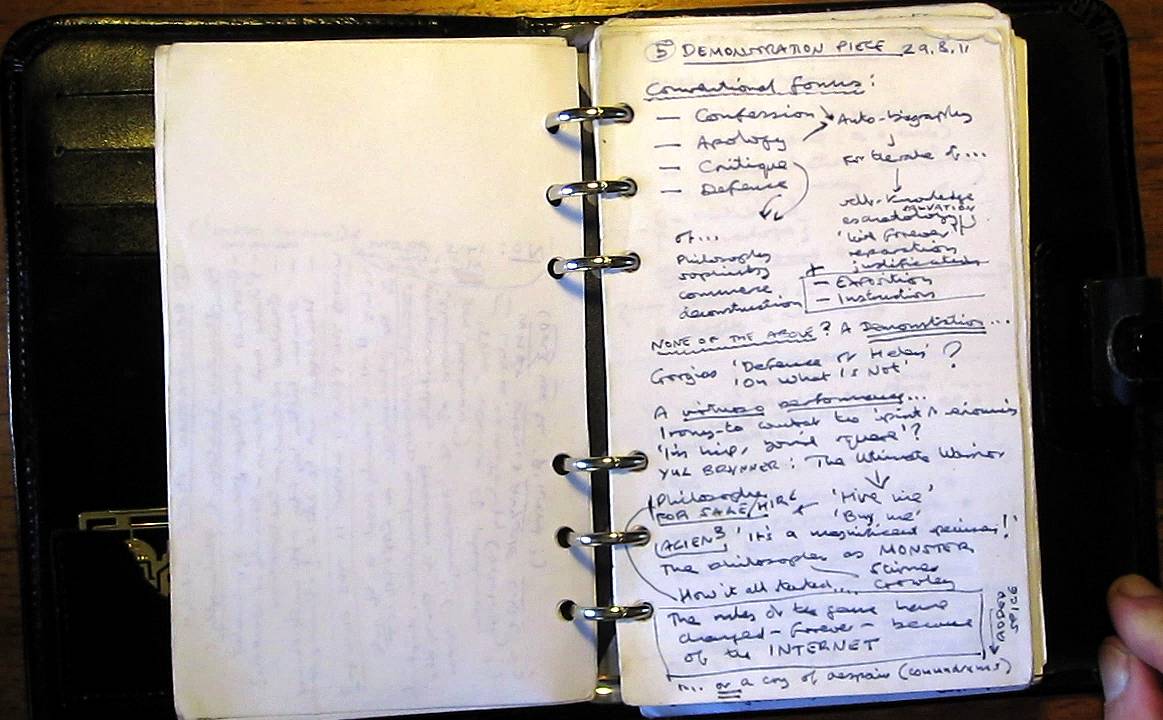 ⑤ DEMONSTRATION PIECE 29.8.11
Conventional forms:
— Confession
— Apology
— Critique
— Defence
Auto-biography
For the sake of...
self-knowledge
SALVATION
eschatology
'live forever'
reparation
justification
of...
Philosophy
sophistry
commerce
deconstruction
+
— Exposition
— Instruction
NONE OF THE ABOVE? A Demonstration...
Gorgias 'Defence of Helen' ?
'On What Is Not'
A virtuoso performance...
Irony – to combat the 'spirit of
'I'm hip, you're square'?
YUL BRYNNER: The Ultimate Warrior
Philosopher
FOR SALE/HIRE
'Hire me'
'Buy me'
ALIEN3 'It's a magnificent specimen!'
The philosopher as MONSTER
Crowley
How it all started....
The rules of the game have
changed – forever – because
of the INTERNET
... or a cry of despair (conundrums)